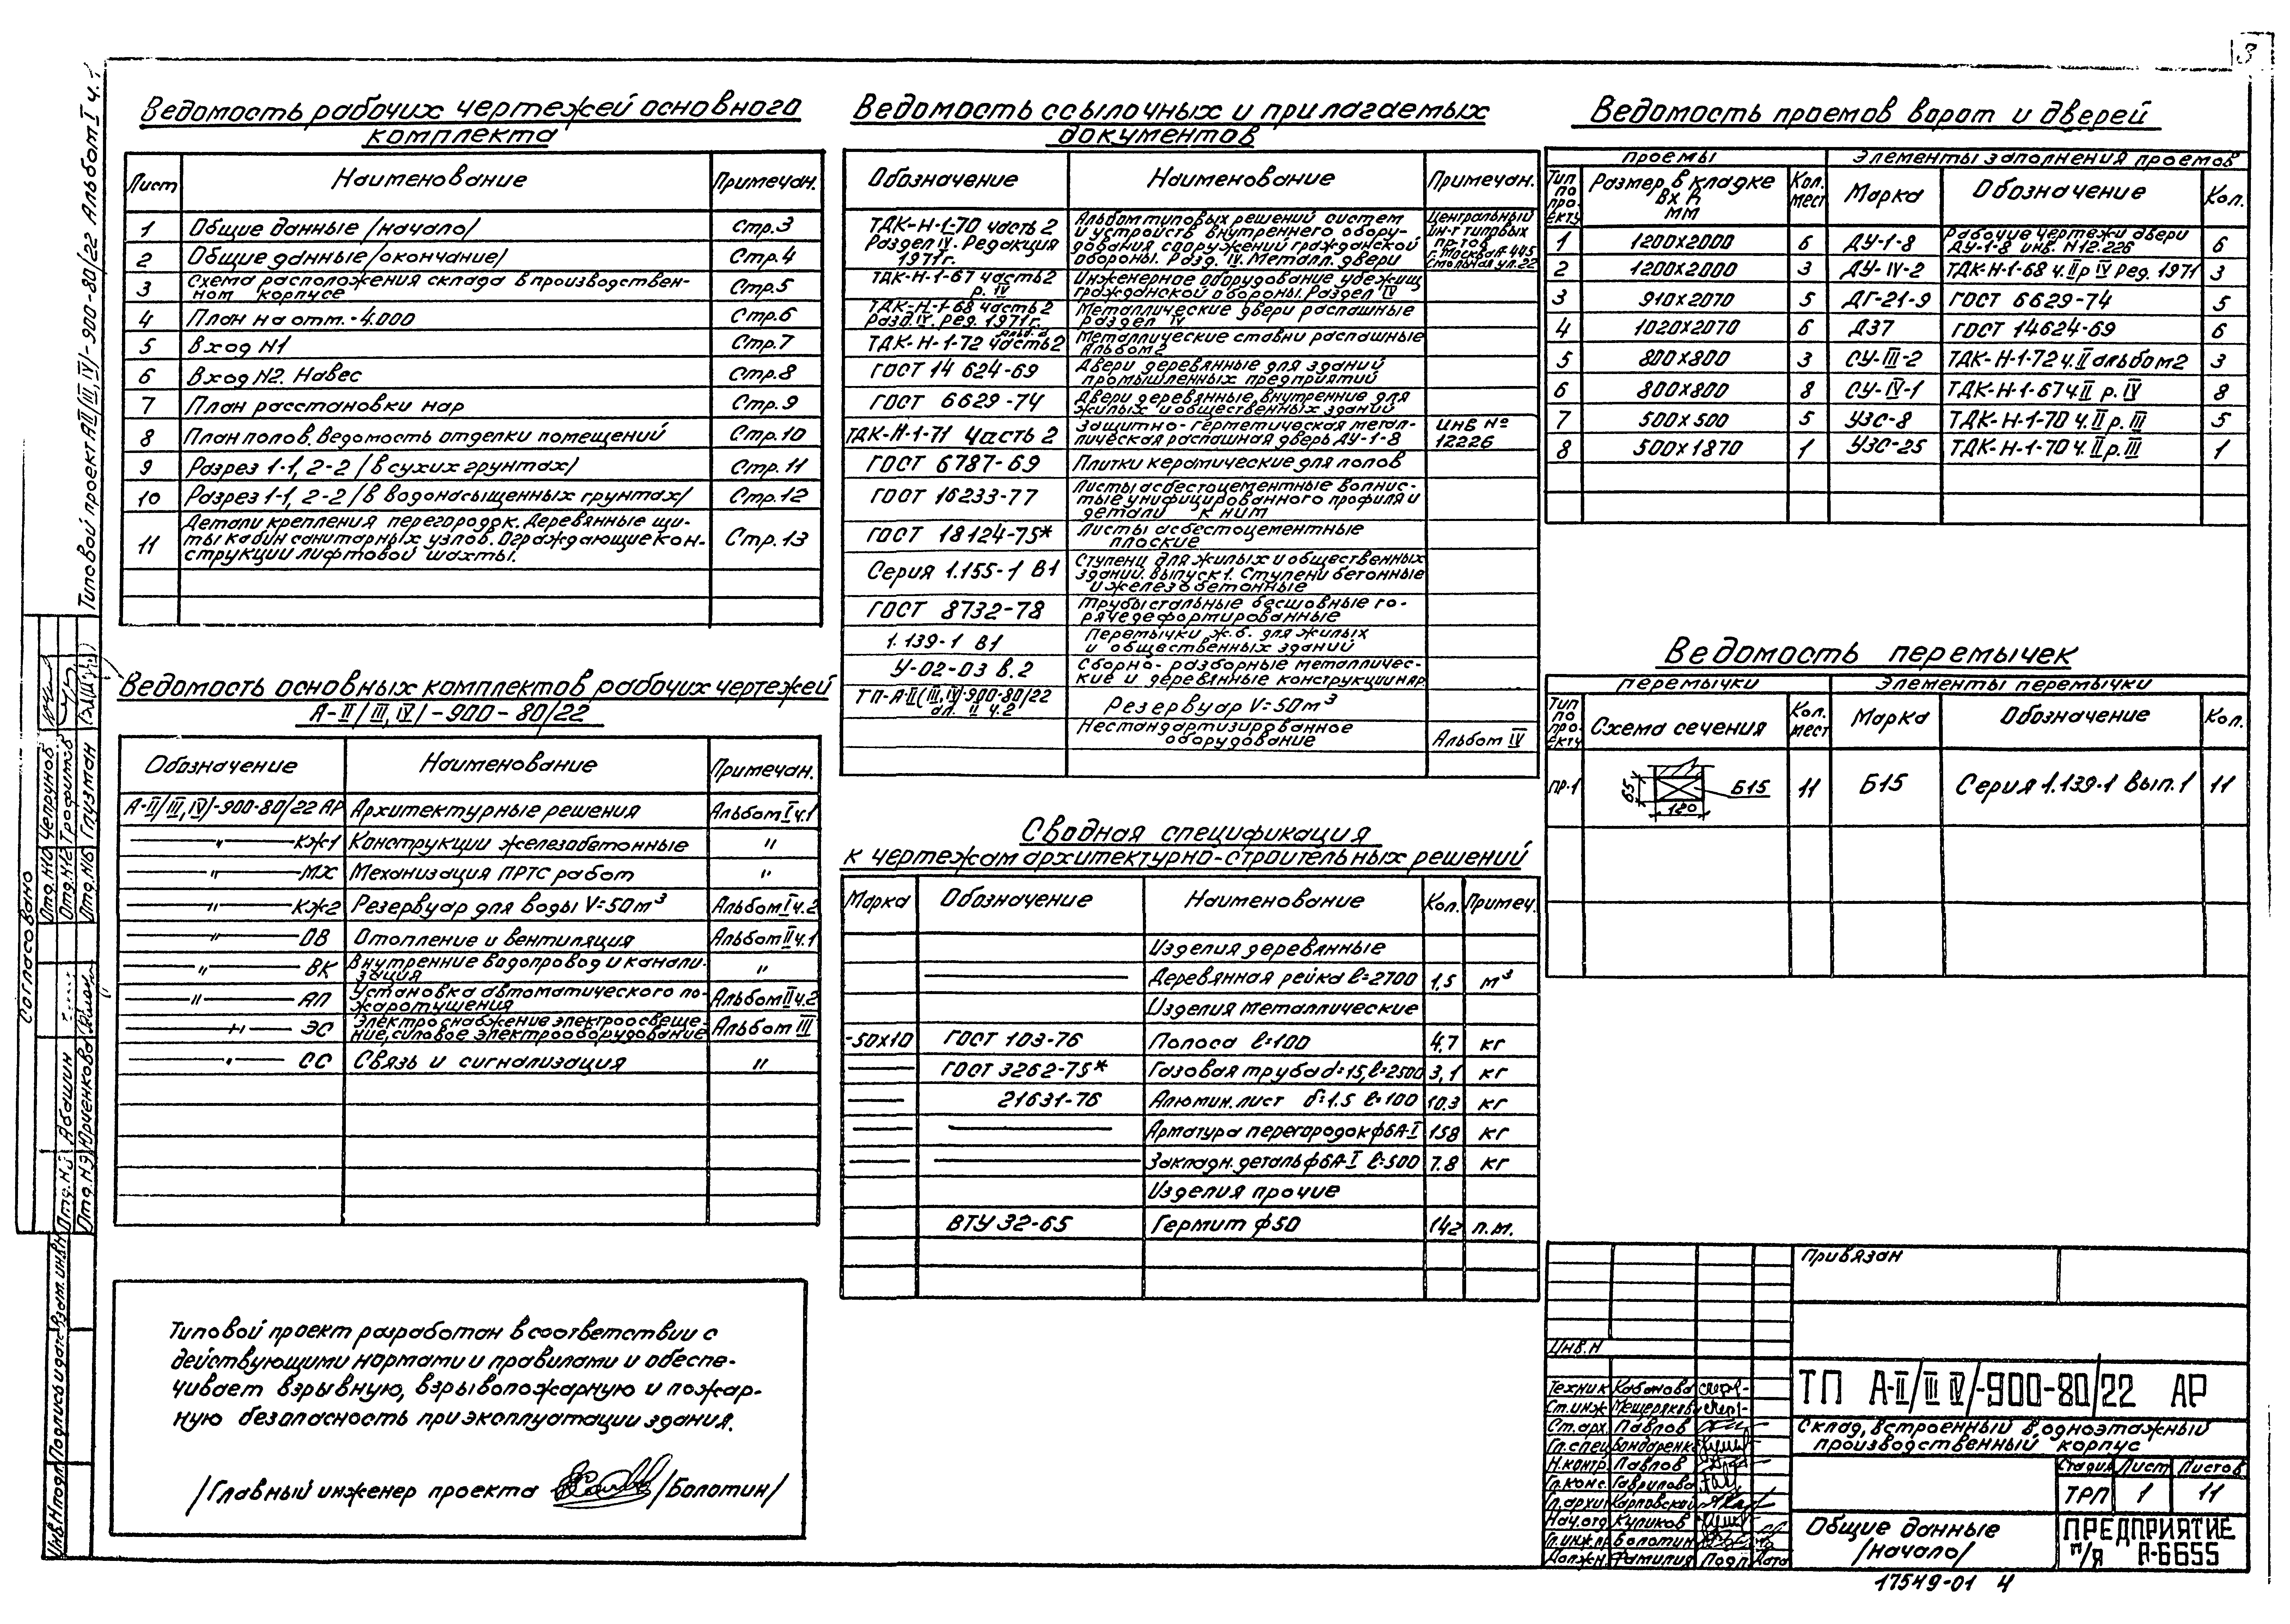 3
Ведомость рабочих чертежей основного
комплекта
Лист Наименование Примечан.
1 Общие данные /начало/ Стр.3
2 Общие данные /окончание/ Стр.4
3 Схема расположения склада в производствен-
ном корпусе Стр.5
4 План на отм. -4.000 Стр.6
5 Вход N1 Стр.7
6 Вход N2. Навес Стр.8
7 План расстановки нар Стр.9
8 План полов. Ведомость отделки помещений Стр.10
9 Разрез 1-1, 2-2 /в сухих грунтах/ Стр.11
10 Разрез 1-1, 2-2 /в водонасыщенных грунтах/ Стр.12
11 Детали крепления перегородок. Деревянные щи-
ты кабин санитарных узлов. Ограждающие кон-
струкции лифтовой шахты. Стр.13
Ведомость основных комплектов рабочих чертежей
А-II/III,IV/-900-80/22
Обозначение Наименование Примечан.
А-II/III,IV/-900-80/22 АР Архитектурные решения Альбом I ч.1
—"— КЖ1 Конструкции железобетонные "
—"— МХ Механизация ПРТС работ "
—"— КЖ2 Резервуар для воды V=50м³ Альбом I ч.2
—"— ОВ Отопление и вентиляция Альбом II ч.1
—"— ВК Внутренние водопровод и канали-
зация "
—"— АП Установка автоматического по-
жаротушения Альбом II ч.2
—"— ЭС Электроснабжение электроосвеще-
ние, силовое электрооборудование Альбом III
—"— СС Связь и сигнализация "
Типовой проект разработан в соответствии с
действующими нормами и правилами и обеспе-
чивает взрывную, взрывопожарную и пожар-
ную безопасность при эксплуатации здания.
/Главный инженер проекта /Болотин/
Ведомость ссылочных и прилагаемых
документов
Обозначение Наименование Примечан.
ТДК-Н-1-70 часть 2
Раздел IV. Редакция
1971г.
Альбом типовых решений систем
и устройств внутреннего обору-
дования сооружений гражданской
обороны. Разд. IV. Металл. двери
Центральный
ин-т типовых
пр-тов
г. Москва А-445
Смольная ул.22
ТДК-Н-1-67 часть 2
р. IV
Инженерное оборудование убежищ
гражданской обороны. Раздел IV
ТДК-Н-1-68 часть 2
Разд. IV. Ред. 1971г.
Металлические двери распашные
раздел IV
альб. 2
ТДК-Н-1-72 часть 2
Металлические ставни распашные
Альбом 2
ГОСТ 14 624-69 Двери деревянные для зданий
промышленных предприятий
ГОСТ 6629-74 Двери деревянные, внутренние для
жилых и общественных зданий
ТДК-Н-1-71 Часть 2 Защитно-герметическая метал-
лическая распашная дверь ДУ-1-8
ИНВ №
12226
ГОСТ 6787-69 Плитки керамические для полов
ГОСТ 16233-77 Листы асбестоцементные волнис-
тые унифицированного профиля и
детали к ним
ГОСТ 18124-75* Листы асбестоцементные
плоские
Серия 1.155-1 В1 Ступени для жилых и общественных
зданий. Выпуск 1. Ступени бетонные
и железобетонные
ГОСТ 8732-78 Трубы стальные бесшовные го-
рячедеформированные
1.139-1 В1 Перемычки ж.б. для жилых
и общественных зданий
У-02-03 в.2 Сборно-разборные металличес-
кие и деревянные конструкции нар
ТП-А-II(III,IV)-900-80/22
ал. II ч.2
Резервуар V=50м³
Нестандартизированное
оборудование Альбом IV
Сводная спецификация
к чертежам архитектурно-строительных решений
Марка Обозначение Наименование Кол. Примеч.
Изделия деревянные
Деревянная рейка ℓ=2700 1,5 м³
Изделия металлические
-50х10 ГОСТ 103-76 Полоса ℓ=100 4,7 кг
ГОСТ 3262-75* Газовая труба d=15, ℓ=2500 3,1 кг
21631-76 Алюмин. лист δ=1.5 ℓ=100 10.3 кг
Арматура перегородок ф6А-I 158 кг
Закладн. деталь ф6А-I ℓ=500 7.8 кг
Изделия прочие
ВТУ 32-65 Гермит ф50 142 п.м.
Ведомость проемов ворот и дверей
проемы Элементы заполнения проемов
Тип
по
про-
екту
Размер в кладке
Вх h
мм
Кол.
мест
Марка Обозначение Кол.
1 1200х2000 6 ДУ-1-8 Рабочие чертежи двери
ДУ-1-8 инв. N12.226 6
2 1200х2000 3 ДУ-IV-2 ТДК-Н-1-68 ч.II р IV Ред. 1971 3
3 910х2070 5 ДГ-21-9 ГОСТ 6629-74 5
4 1020х2070 6 Д37 ГОСТ 14624-69 6
5 800х800 3 СУ-III-2 ТДК-Н-1-72 ч.II альбом 2 3
6 800х800 8 СУ-IV-1 ТДК-Н-1-67 ч.II р. IV 8
7 500х500 5 УЗС-8 ТДК-Н-1-70 ч.II р. III 5
8 500х1870 1 УЗС-25 ТДК-Н-1-70 ч.II р. III 1
Ведомость перемычек
перемычки Элементы перемычки
Тип
по
про-
екту
Схема сечения Кол.
мест
Марка Обозначение Кол.
ПР-1 65 120 Б15 11 Б15 Серия 1.139-1 Вып.1 11
Привязан
Инв.N
Техник Кабанова
Ст.инж. Мещерякова
Ст.арх. Павлов
Гл.спец Бондаренко
Н.контр. Павлов
Гл.конс. Гаврилова
Гл.архит Карповский
Нач.отд Куликов
Гл.инж.пр Болотин
Должн. Фамилия Подп. Дата
ТП А-II/III IV/-900-80/22 АР
Склад, встроенный в одноэтажный
производственный корпус
Стадия Лист Листов
ТРП 1 11
Общие данные
/начало/
ПРЕДПРИЯТИЕ
п/я А-6655
17549-01 4
Типовой проект АII/III,IV/-900-80/22 Альбом I ч.1
Согласовано
Отд.N10 Чепрунов
Отд.N12 Трофимов
Отд.N6 Глузман
Абашин
Отд.N9 Юрченкова
Инв.N подл. Подпись и дата Взам.инв.N